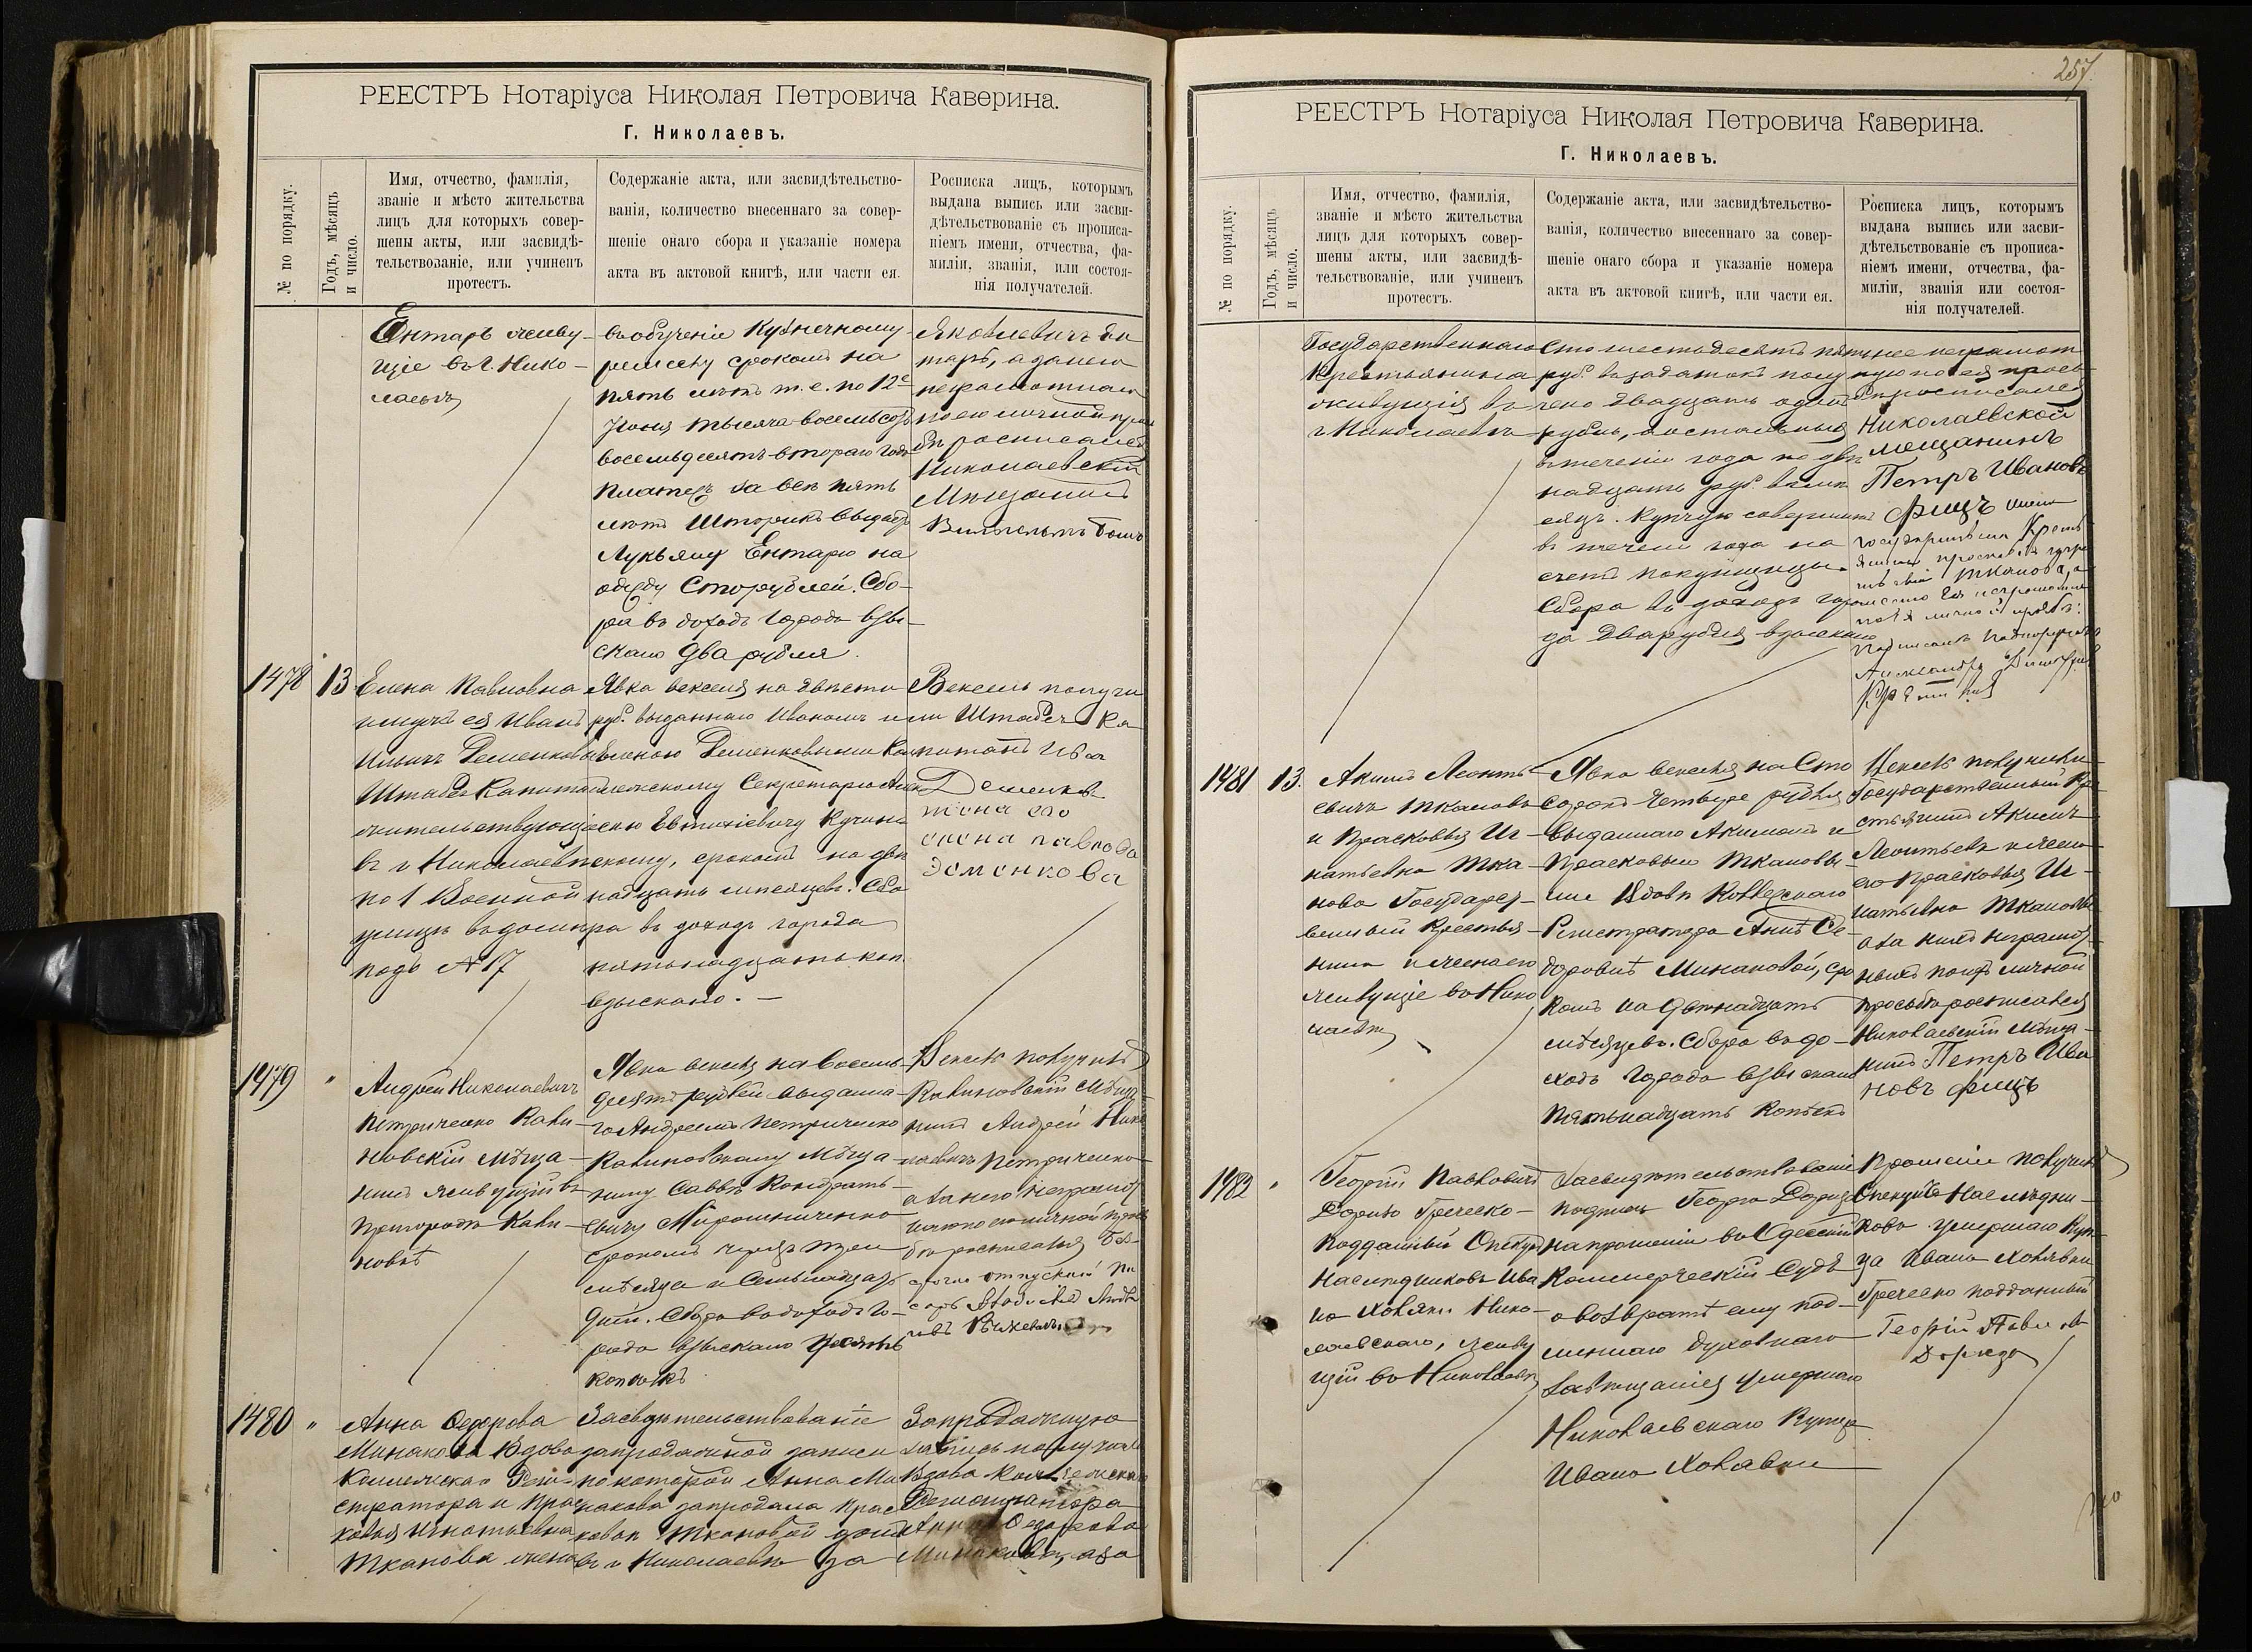 РЕЕСТРЪ Нотаріуса Николая Петровича Каверина.
Г. Николаевъ.
№ по порядку.
Годъ, мѣсяцъ
и число.
Имя, отчество, фамилія,
званіе и мѣсто жительства
лицъ для которыхъ совер-
шены акты, или засвидѣ-
тельствованіе, или учиненъ
протестъ.
Содержаніе акта, или засвидѣтельство-
ванія, количество внесеннаго за совер-
шеніе онаго сбора и указаніе номера
акта въ актовой книгѣ, или части ея.
Росписка лицъ, которымъ
выдана выпись или засви-
дѣтельствованіе съ прописа-
ніемъ имени, отчества, фа-
миліи, званія, или состоя-
нія получателей.
Ентарь живу-
щіе въ г. Нико-
лаевѣ
въ обученіе Кузнечному
ремеслу срокомъ на
пять лѣтъ т. е. по 12е
Іюня тысяча восемьсотъ
восемьдесятъ втораго года
за всѣ пять
лѣтъ выдаетъ
Лукьяну Ентарю на
одежду Сто рублей. Сбо-
ра въ доходъ города взы-
скано два рубля.
Яковлевичъ Ен
тарь, а за него
неграмотнаго
по его личной прось
бѣ росписался
Николаевскій
Мѣщанинъ
1478
13
Елена Павловна
и мужъ ея Иванъ
Ильичъ Деменковы
Штабсъ Капитанъ
жительствующіе
въ г. Николаевѣ
по 1 Военной
улицѣ въ домѣ
подъ № 17
Явка векселя на двѣсти
руб. выданнаго Иваномъ и
Еленою Деменковыми Кол
лежскому Секретарю
Евтихіевичу
скому, срокомъ на двѣ
надцать мѣсяцевъ. Сбо
ра въ доходъ города
пятьнадцать коп.
взыскано. —
Вексель получи
ли Штабсъ Ка
питанъ Иван
Деменков
жена его
елена павловна
деменкова
1479
"
Андрей Николаевичъ
Петриченко Кали-
новскій мѣща-
нинъ живущій въ
пригородѣ Кали-
новкѣ
Явка векселя на Восемь-
десятъ рублей выданна-
го Андреемъ Петриченко
Калиновскому Мѣща-
нину Саввѣ Кондрать-
евичу Мирошниченко
срокомъ черезъ три
мѣсяца и Семьнадцать
дней. Сбора въ доходъ го-
рода взыскано десять
копѣекъ
Вексель получилъ
Калиновскій Мѣща-
нинъ Андрей Нико
лаевичъ Петриченко
а за него неграмот
наго по его личной прось
бѣ росписался
отпускной пи
сарь
1480
"
Анна Федорова
Минакова Вдова
Коллежскаго Реги-
стратора и Прас
ковья Игнатьевна
Тканова жена
Засвидѣтельствованіе
запродажной записи
по которой Анна Ми
накова запродала Прас
ковьѣ Ткановой домъ
въ г. Николаевѣ за
Запродажную
запись получила
Вдова Коллежскаго
Регистратора
Анна Федорова
Минакова, а за
257.
РЕЕСТРЪ Нотаріуса Николая Петровича Каверина.
Г. Николаевъ.
№ по порядку.
Годъ, мѣсяцъ
и число.
Имя, отчество, фамилія,
званіе и мѣсто жительства
лицъ для которыхъ совер-
шены акты, или засвидѣ-
тельствованіе, или учиненъ
протестъ.
Содержаніе акта, или засвидѣтельство-
ванія, количество внесеннаго за совер-
шеніе онаго сбора и указаніе номера
акта въ актовой книгѣ, или части ея.
Росписка лицъ, которымъ
выдана выпись или засви-
дѣтельствованіе съ прописа-
ніемъ имени, отчества, фа-
миліи, званія или состоя-
нія получателей.
Государственнаго
Крестьянина
живущія въ
г. Николаевѣ
Сто шестьдесятъ пять
руб. въ задатокъ полу
чено двадцать одинъ
рубль, а остальные
въ теченіи года по двѣ
надцать руб. въ мѣс
яцъ. Купчую совершить
въ теченіи года на
счетъ покупщицы.
Сбора въ доходъ горо
да два рубля взыскано
нее неграмот
ную по ея прось
бѣ росписался
Николаевской
мещанинъ
Петръ Ивановъ
Фицъ
Тканова, а
за нее неграмотную
по ея личной прозбѣ
Подписалъ
Александръ
1481
13.
Акимъ Леонть-
евичъ Ткановъ
и Прасковья Иг-
натьевна Тка-
нова Государст-
венный Крестья-
нинъ и жена его
живущіе въ Нико
лаевѣ
Явка векселя на Сто
сорокъ четыре рубля
выданнаго Акимомъ и
Прасковьею Ткановы-
ми Вдовѣ Коллежскаго
Регистратора Аннѣ Фе-
доровнѣ Минаковой, сро
комъ на двѣнадцать
мѣсяцевъ. Сбора въ до-
ходъ города взыскано
пятьнадцать копѣекъ
Вексель получили
Государственный Кре
стьянинъ Акимъ
Леонтьевъ и жена
его Прасковья Иг-
натьевна Ткановы
а за нихъ неграмот-
ныхъ по ихъ личной
просьбѣ росписался
Николаевскій Мѣща-
нинъ Петръ Ива
новъ Фицъ
1482
"
Георгій Павловичъ
Греческо-
подданный Опекунъ
Наслѣдниковъ Ива
на Нико-
лаевскаго, живу
щій въ Николаевѣ
Засвидѣтельствованіе
подписи Георгія
на прошеніи въ Одесскій
Коммерческій Судъ
о возвратѣ ему под-
линнаго духовнаго
завѣщанія умершаго
Николаевскаго Купца
Ивана
Прошеніе получилъ
Опекунъ Наслѣдни-
ковъ умершаго Куп-
ца Ивана
Греческо подданный
Георгій Павлов